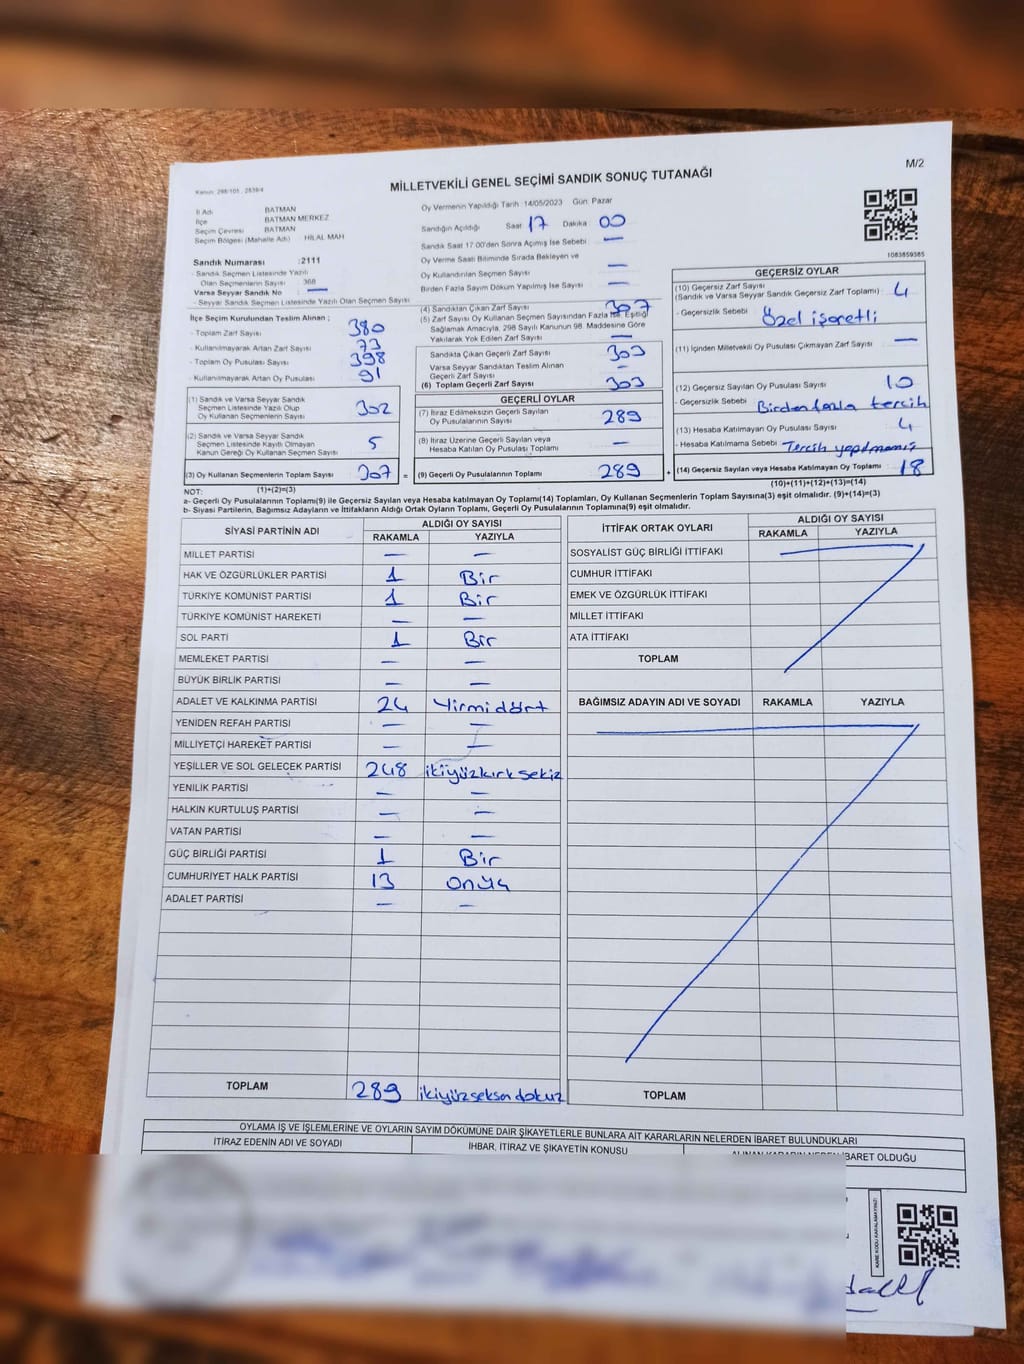 M/2
Kanun: 298/105 , 2839/4
MİLLETVEKİLİ GENEL SEÇİMİ SANDIK SONUÇ TUTANAĞI
İl Adı BATMAN
İlçe BATMAN MERKEZ
Seçim Çevresi BATMAN
Seçim Bölgesi (Mahalle Adı) HİLAL MAH
Sandık Numarası :2111
- Sandık Seçmen Listesinde Yazılı
Olan Seçmenlerin Sayısı 368
Varsa Seyyar Sandık No : —
- Seyyar Sandık Seçmen Listesinde Yazılı Olan Seçmen Sayısı
İlçe Seçim Kurulundan Teslim Alınan ;
- Toplam Zarf Sayısı 380
- Kullanılmayarak Artan Zarf Sayısı 73
- Toplam Oy Pusulası Sayısı 398
- Kullanılmayarak Artan Oy Pusulası 91
(1) Sandık ve Varsa Seyyar Sandık
Seçmen Listesinde Yazılı Olup
Oy Kullanan Seçmenlerin Sayısı 302
(2) Sandık ve Varsa Seyyar Sandık
Seçmen Listesinde Kayıtlı Olmayan
Kanun Gereği Oy Kullanan Seçmen Sayısı 5
(3) Oy Kullanan Seçmenlerin Toplam Sayısı 307 =
(1)+(2)=(3)
Oy Vermenin Yapıldığı Tarih :14/05/2023 Gün :Pazar
Sandığın Açıldığı Saat 17 Dakika 00
Sandık Saat 17.00'den Sonra Açılmış İse Sebebi —
Oy Verme Saati Bitiminde Sırada Bekleyen ve
Oy Kullandırılan Seçmen Sayısı —
Birden Fazla Sayım Döküm Yapılmış İse Sayısı —
(4) Sandıktan Çıkan Zarf Sayısı 307
(5) Zarf Sayısı Oy Kullanan Seçmen Sayısından Fazla İse, Eşitliği
Sağlamak Amacıyla, 298 Sayılı Kanunun 98. Maddesine Göre
Yakılarak Yok Edilen Zarf Sayısı —
Sandıkta Çıkan Geçerli Zarf Sayısı 303
Varsa Seyyar Sandıktan Teslim Alınan
Geçerli Zarf Sayısı —
(6) Toplam Geçerli Zarf Sayısı 303
GEÇERLİ OYLAR
(7) İtiraz Edilmeksizin Geçerli Sayılan
Oy Pusulalarının Sayısı 289
(8) İtiraz Üzerine Geçerli Sayılan veya
Hesaba Katılan Oy Pusulası Toplamı —
(9) Geçerli Oy Pusulalarının Toplamı 289 +
1083859385
GEÇERSİZ OYLAR
(10) Geçersiz Zarf Sayısı 4
(Sandık ve Varsa Seyyar Sandık Geçersiz Zarf Toplamı)
- Geçersizlik Sebebi Özel işaretli
(11) İçinden Milletvekili Oy Pusulası Çıkmayan Zarf Sayısı —
(12) Geçersiz Sayılan Oy Pusulası Sayısı 10
- Geçersizlik Sebebi Birden fazla tercih
(13) Hesaba Katılmayan Oy Pusulası Sayısı 4
- Hesaba Katılmama Sebebi Tercih yapılmamış
(14) Geçersiz Sayılan veya Hesaba Katılmayan Oy Toplamı 18
(10)+(11)+(12)+(13)=(14)
NOT:
a- Geçerli Oy Pusulalarının Toplamı(9) ile Geçersiz Sayılan veya Hesaba katılmayan Oy Toplamı(14) Toplamları, Oy Kullanan Seçmenlerin Toplam Sayısına(3) eşit olmalıdır. (9)+(14)=(3)
b- Siyasi Partilerin, Bağımsız Adayların ve İttifakların Aldığı Ortak Oyların Toplamı, Geçerli Oy Pusulalarının Toplamına(9) eşit olmalıdır.
SİYASİ PARTİNİN ADI ALDIĞI OY SAYISI
RAKAMLA YAZIYLA
MİLLET PARTİSİ — —
HAK VE ÖZGÜRLÜKLER PARTİSİ 1 Bir
TÜRKİYE KOMÜNİST PARTİSİ 1 Bir
TÜRKİYE KOMÜNİST HAREKETİ — —
SOL PARTİ 1 Bir
MEMLEKET PARTİSİ — —
BÜYÜK BİRLİK PARTİSİ — —
ADALET VE KALKINMA PARTİSİ 24 Yirmidört
YENİDEN REFAH PARTİSİ — —
MİLLİYETÇİ HAREKET PARTİSİ — —
YEŞİLLER VE SOL GELECEK PARTİSİ 248 ikiyüzkırksekiz
YENİLİK PARTİSİ — —
HALKIN KURTULUŞ PARTİSİ — —
VATAN PARTİSİ — —
GÜÇ BİRLİĞİ PARTİSİ 1 Bir
CUMHURİYET HALK PARTİSİ 13 onüç
ADALET PARTİSİ — —
TOPLAM 289 ikiyüzseksendokuz
İTTİFAK ORTAK OYLARI ALDIĞI OY SAYISI
RAKAMLA YAZIYLA
SOSYALİST GÜÇ BİRLİĞİ İTTİFAKI
CUMHUR İTTİFAKI
EMEK VE ÖZGÜRLÜK İTTİFAKI
MİLLET İTTİFAKI
ATA İTTİFAKI
TOPLAM
BAĞIMSIZ ADAYIN ADI VE SOYADI RAKAMLA YAZIYLA
TOPLAM
OYLAMA İŞ VE İŞLEMLERİNE VE OYLARIN SAYIM DÖKÜMÜNE DAİR ŞİKAYETLERLE BUNLARA AİT KARARLARIN NELERDEN İBARET BULUNDUKLARI
İTİRAZ EDENİN ADI VE SOYADI İHBAR, İTİRAZ VE ŞİKAYETİN KONUSU ALINAN KARARIN NEDEN İBARET OLDUĞU
KARE KODU KARALAMAYINIZ!